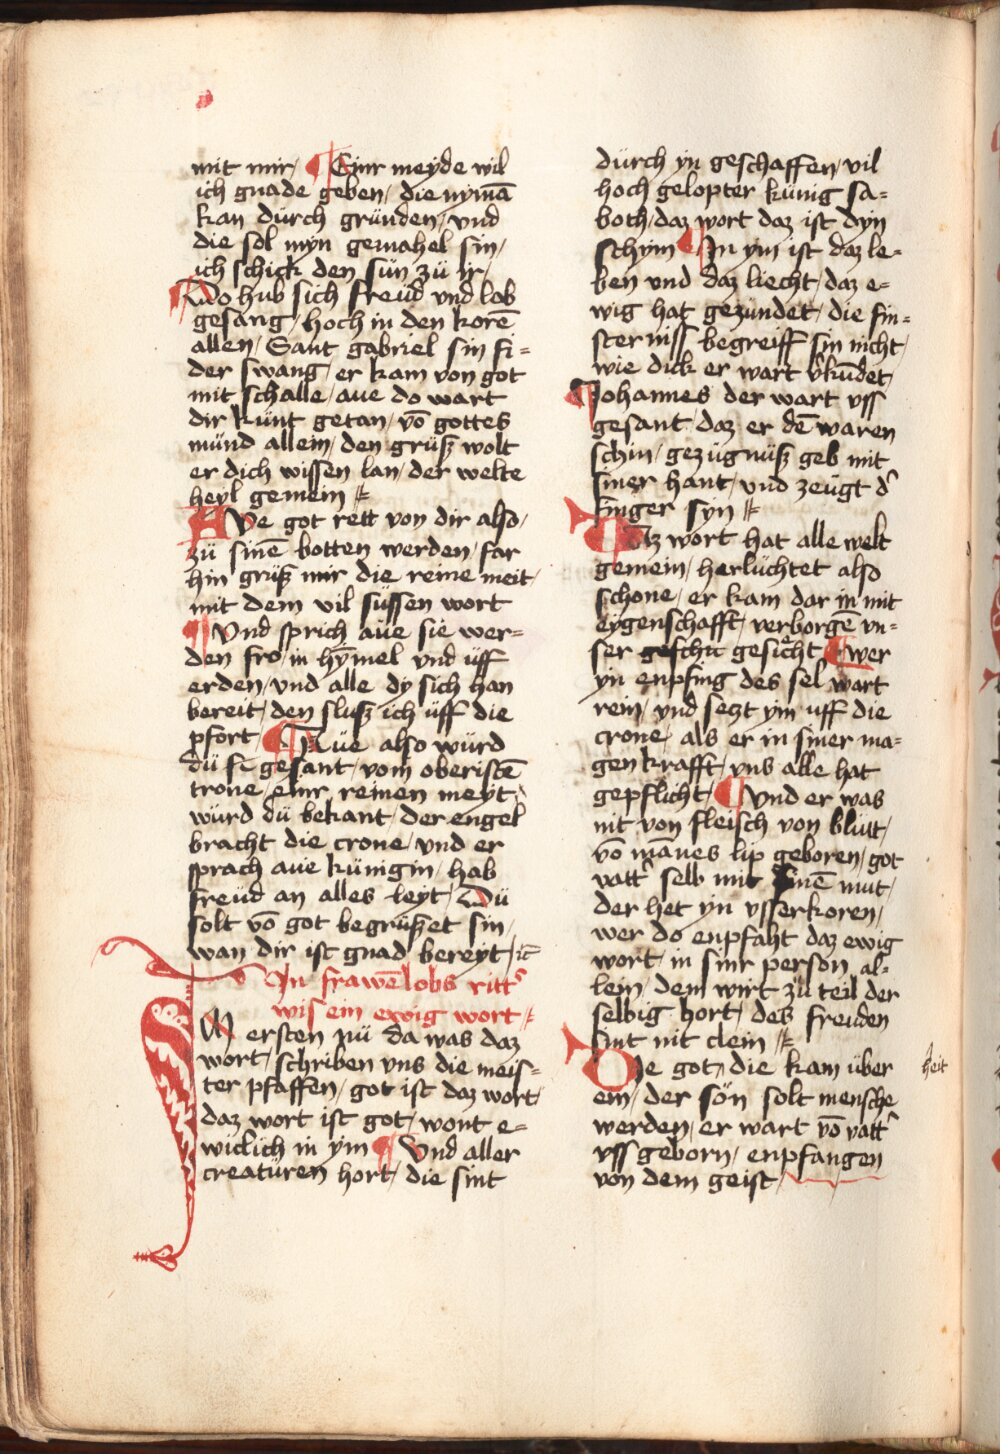 mit mir / Einr meyde wil
ich gnade geben / die nymā
kan dürch gründen / vnd
die sol myn gemahel sin /
ich schick den sün zü ir /
Do hub sich freüd vnd lob
gesang / hoch in den korē
allen / Sant gabriel sin fi=
der swang / er kam von got
mit schalle / aue do wart
dir künt getan / vō gottes
münd allein / den grüsz wolt
er dich wissen lan / der welte
heyl gemein
AVe got rett von dir also /
zü sinē botten werden / far
hin grüsz mir die reine meit /
mit dem vil süssen wort
Vnd sprich aüe sie wer=
den fro / in hȳmel vnd üff
erden / vnd alle dy sich han
bereit / den slusz ich üff die
pfort / Aüe also würd
dü fr̄ gesant / vom oberistē
trone / einr reinen meyt /
würd dü bekant / der engel
bracht die crone / vnd er
sprach aue künigin / hab
freüd an alles leyt / Dü
solt vō got begrüszet sin /
wan dir ist gnad bereyt / ic̄
In frawēlobs ritt'
wis ein ewig wort
IM ersten nü da was daz
wort / schriben vns die meis=
ter pfaffen / got ist daz wort /
daz wort ist got / wont e=
wiclich in ym Vnd aller
creatüren hort / die sint
dürch yn geschaffen / vil
hoch gelopter künig sa=
both / daz wort daz ist dyn
schym In ym ist daz le=
ben vnd daz liecht / daz e=
wig hat gezündet / die fin=
sterniss begreiff sin nicht /
wie dick er wart v'kūdet /
Johannes der wart vss
gesant / daz er dē waren
schin / gezügnüsz geb mit
siner hant / vnd zeügt d'
finger syn
Daz wort hat alle welt
gemein / herlüchtet also
schone / er kam dar in mit
eygenschafft / verborgē vn=
ser geschit gesicht wer
yn enpfing des sel wart
rein / vnd setzt ym uff die
crone / als er in siner ma=
gen krafft / vns alle hat
gepflicht / Vnd er was
nit von fleisch von blütt /
vō māües lip geboren / got
vatt' selb mit sinē mut /
der het yn vsserkoren /
wer do enpfaht daz ewig
wort / in sinr person al=
lein / dem wirt zü teil der
selbig hort / des freuden
sint nit clein
Die got / die kam über heit
ein / der sön solt mensche
werden / er wart vō vatt'
vss geborn / enpfangen
von dem geist